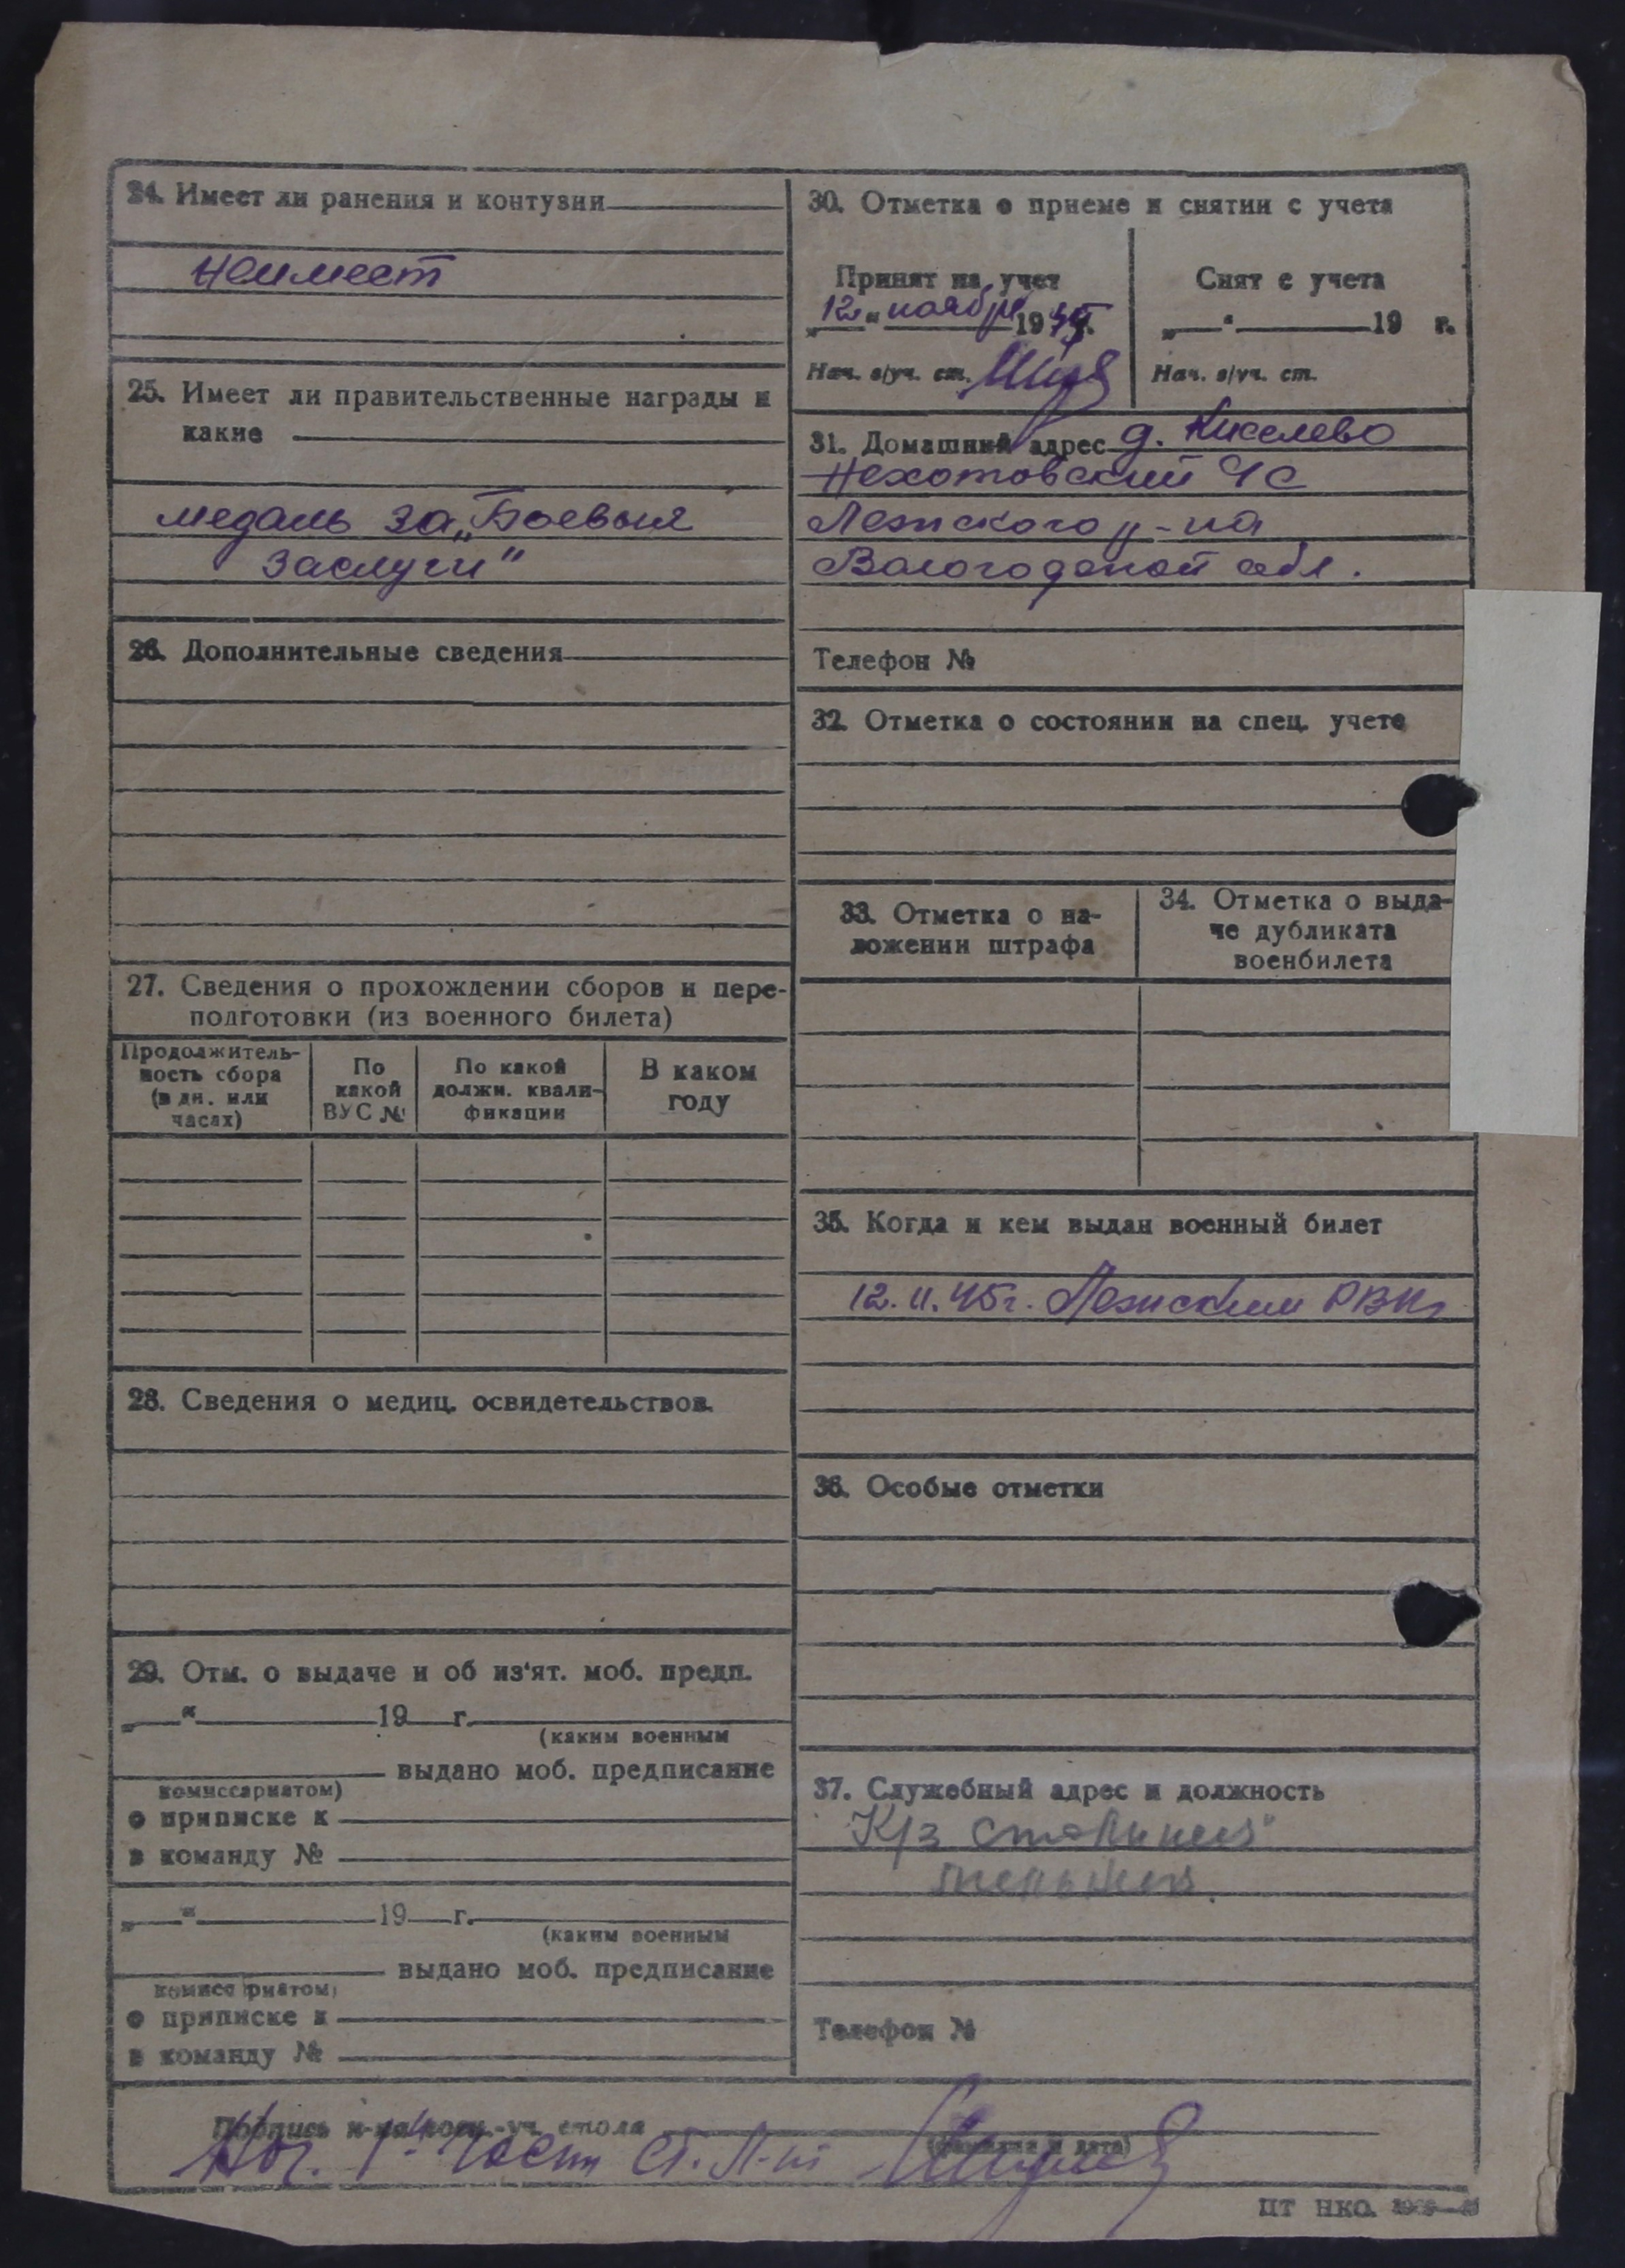 24. Имеет ли ранения и контузии
Неимеет
25. Имеет ли правительственные награды и
какие
медаль за „Боевые
заслуги"
26. Дополнительные сведения
27. Сведения о прохождении сборов и пере-
подготовки (из военного билета)
Продолжитель-
ность сбора
(в дн. или
часах)
По
какой
ВУС №
По какой
должн. квали-
фикации
В каком
году
28. Сведения о медиц. освидетельствов.
29. Отм. о выдаче и об из'ят. моб. предп.
„ “ 19 г.
(каким военным
выдано моб. предписание
комиссариатом)
о приписке к
в команду №
„ “ 19 г.
(каким военным
выдано моб. предписание
комиссариатом)
о приписке к
в команду №
30. Отметка о приеме и снятии с учета
Принят на учет
„12“ ноября 1945 г.
Нач. в/уч. ст.
Снят с учета
„ “ 19 г.
Нач. в/уч. ст.
31. Домашний адрес д. Киселево
Нехотовский ЧС
Лежского р-на
Вологодской обл.
Телефон №
32. Отметка о состоянии на спец. учете
33. Отметка о на-
ложении штрафа
34. Отметка о выда-
че дубликата
военбилета
35. Когда и кем выдан военный билет
12.11.45г. Лежским РВК
36. Особые отметки
37. Служебный адрес и должность
К/з Сталина
Телефон №
Подпись н-ка воен.-уч. стола
(фамилия и дата)
Нач. 1ч части ст. л-нт
ЦТ НКО.